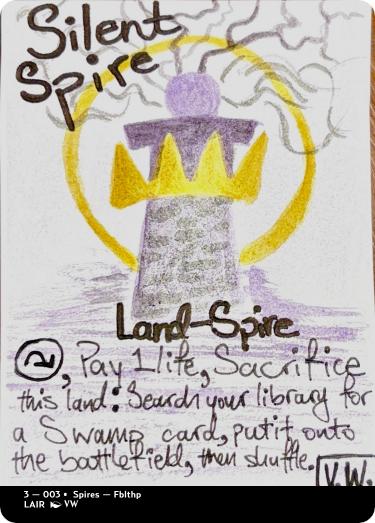 Silent
Spire
Land-Spire
②, Pay 1 life, Sacrifice
this land: Search your library for
a Swamp card, put it onto
the battlefield, then shuffle.
V.W.
3 — 003 • Spires — Fblthp
LAIR VW